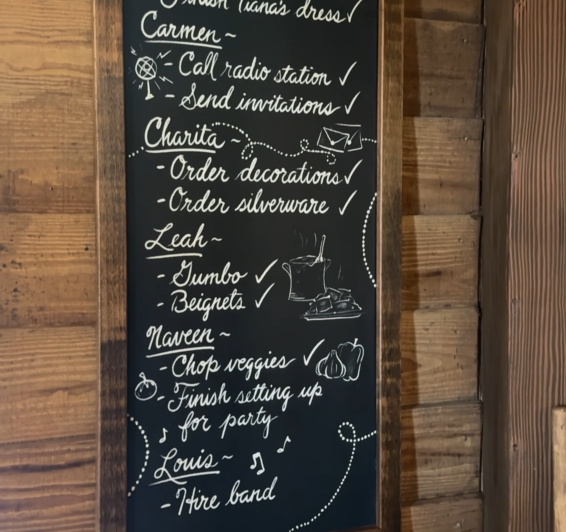 - Finish Tiana's dress ✓
Carmen ~
- Call radio station ✓
- Send invitations ✓
Charita ~
- Order decorations ✓
- Order silverware ✓
Leah ~
- Gumbo ✓
- Beignets ✓
Naveen ~
- Chop veggies ✓
- Finish setting up
for party
Louis ~
- Hire band